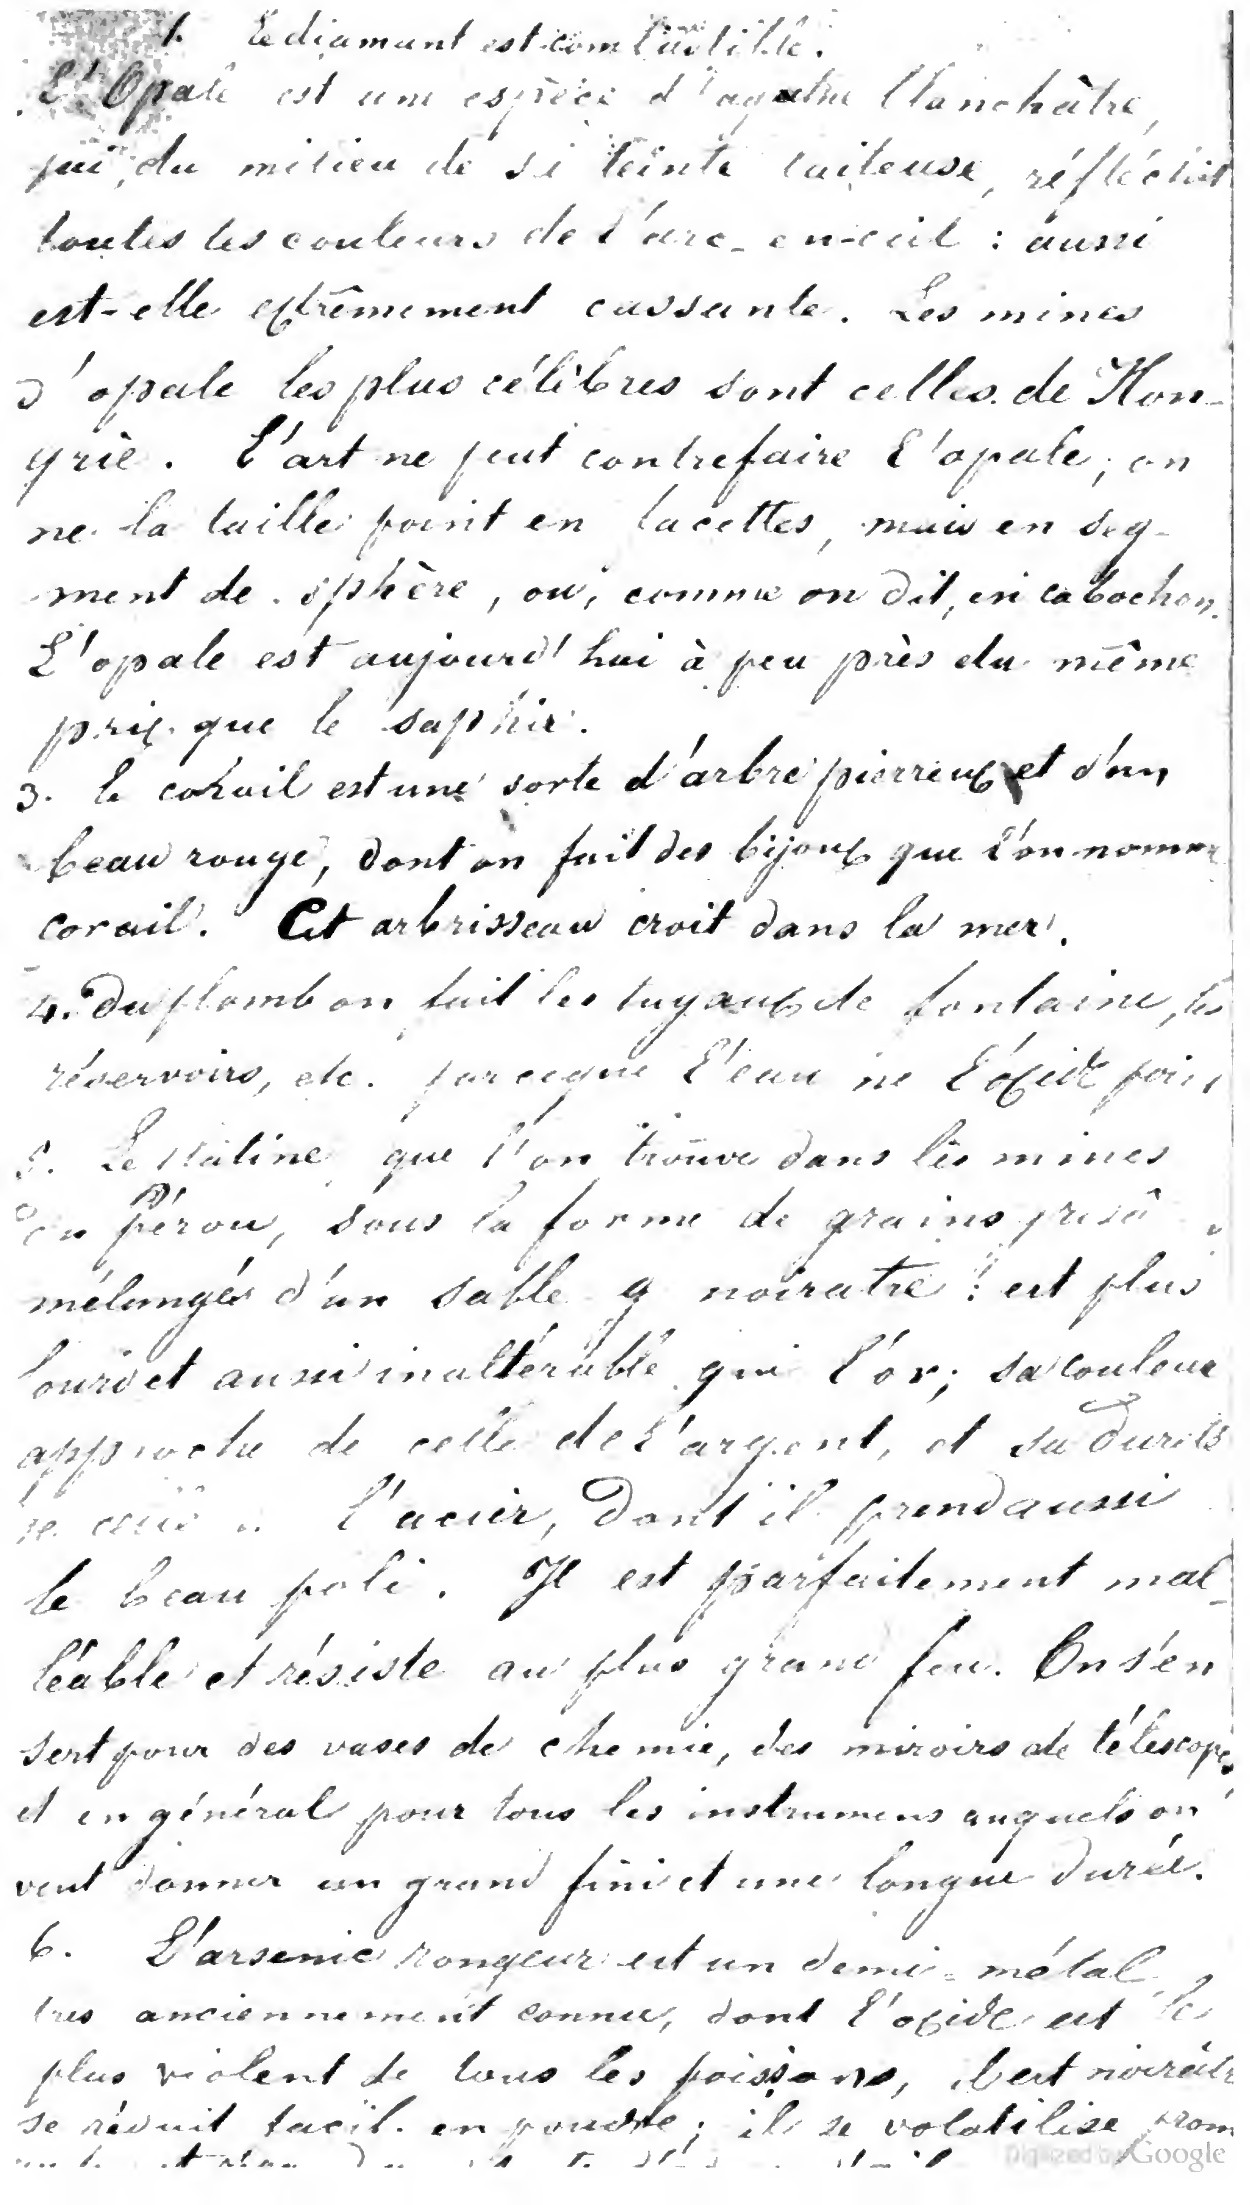 1. Le diamant est combustible.
L'Opale est une espèce d'agathe blanchâtre,
qui, du milieu de sa teinte laiteuse, réfléchit
toutes les couleurs de l'arc-en-ciel : aussi
est-elle extrêmement cassante. Les mines
d'opale les plus célèbres sont celles de Hon-
grie. L'art ne peut contrefaire l'opale; on
ne la taille point en facettes, mais en seg-
ment de sphère, ou, comme on dit, en cabochon.
L'opale est aujourd'hui à peu près du même
prix que le saphir.
3. le corail est une sorte d'arbre pierreux et d'un
beau rouge, dont on fait des bijoux que l'on nomme
corail. Cet arbrisseau croit dans la mer.
4. Du plomb on fait les tuyaux de fontaine, les
réservoirs, etc. parceque l'eau ne l'oxide point
5. Le Platine que l'on trouve dans les mines
du Pérou, sous la forme de grains
mélangés d'un sable noiratre : est plus
lourd et aussi inaltérable que l'or; sa couleur
approche de celle de l'argent, et sa dureté
de l'acier, dont il prend aussi
le beau poli. Il est parfaitement mal-
léable et résiste au plus grand feu. On s'en
sert pour des vases de chemie, des miroirs de télescopes
et en général pour tous les instrumens auquels on
veut donner un grand fini et une longue durée.
6. L'arsenic rongeur est un demi-métal
tres anciennement connu, dont l'oxide est le
plus violent de tous les poissons, il est noirâtre
se réduit facil. en poudre; il se volatilise prom
Digitized by Google